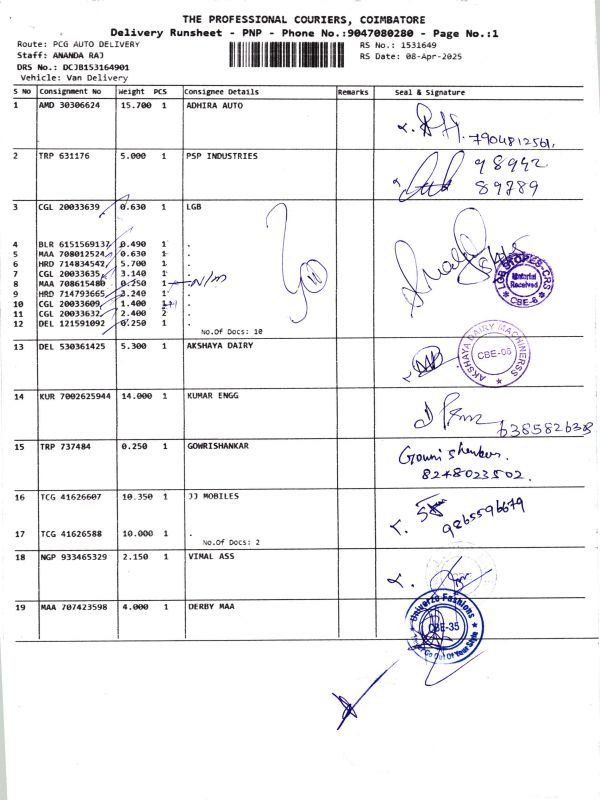 THE PROFESSIONAL COURIERS, COIMBATORE
Delivery Runsheet - PNP - Phone No.:9047080280 - Page No.:1
Route: PCG AUTO DELIVERY
RS No.: 1531649
Staff: ANANDA RAJ
RS Date: 08-Apr-2025
DRS No.: DCJB153164901
Vehicle: Van Delivery
S No Consignment No Weight PCS Consignee Details Remarks Seal & Signature
1 AMD 30306624 15.700 1 ADHIRA AUTO
7904812561.
2 TRP 631176 5.000 1 PSP INDUSTRIES
98942
89789
3 CGL 20033639 0.630 1 LGB
4 BLR 6151569137 0.490 1 .
5 MAA 708012524 0.630 1 .
6 HRD 714834542 5.700 1 .
7 CGL 20033635 3.140 1 .
8 MAA 708615480 0.250 1 . N/M
9 HRD 714793665 3.240 1 .
10 CGL 20033609 1.400 .
11 CGL 20033632 2.400 2 .
12 DEL 121591092 0.250 1 .
No.Of Docs: 10
LGB STOPES-CRS
Material
Received
CBE-6
13 DEL 530361425 5.300 1 AKSHAYA DAIRY
AKSHAYA DAIRY MACHINERSS
CBE-06
14 KUR 7002625944 14.000 1 KUMAR ENGG
6385826328
15 TRP 737484 0.250 1 GOWRISHANKAR
Gowri shankar.
8248023502.
16 TCG 41626607 10.350 1 JJ MOBILES
9865596679
17 TCG 41626588 10.000 1 .
No.Of Docs: 2
18 NGP 933465329 2.150 1 VIMAL ASS
19 MAA 707423598 4.000 1 DERBY MAA
Universe Fashions
CBE-35
Out Of Your Style